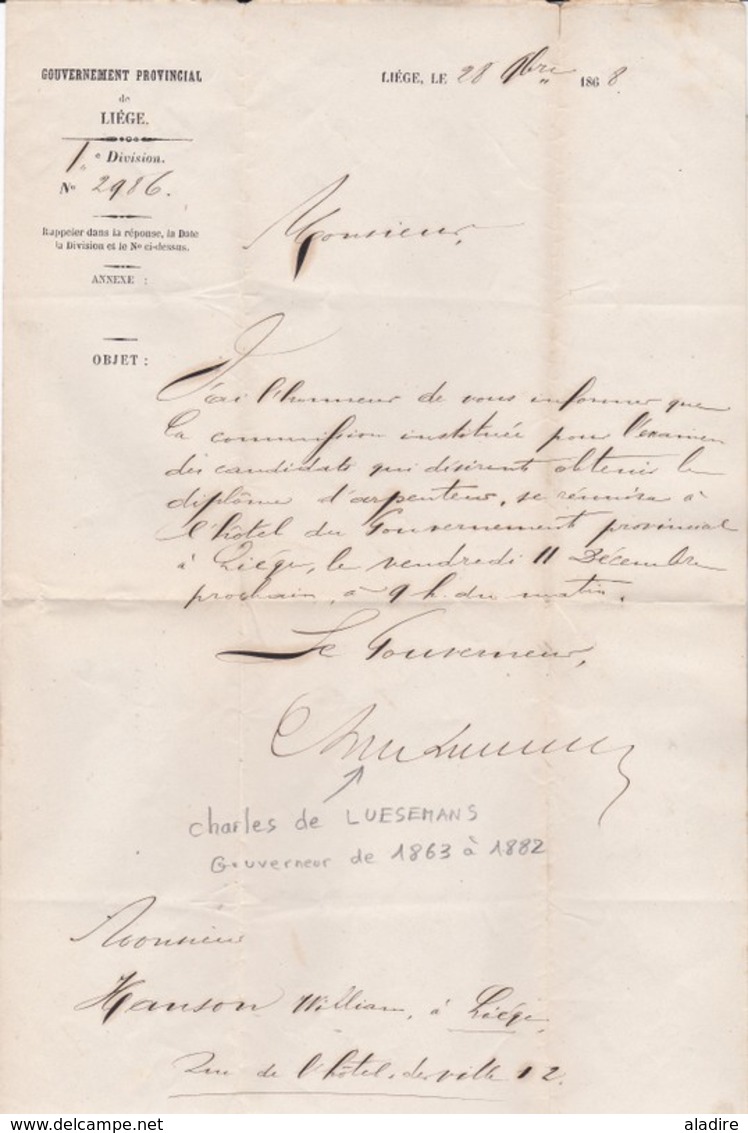 GOUVERNEMENT PROVINCIAL
de
LIÉGE.
1e Division.
No 2986.
Rappeler dans la réponse, la Date
la Division et le No ci-dessus.
ANNEXE :
OBJET :
LIÉGE, LE 28 9bre 1868.
Monsieur,
J'ai l'honneur de vous informer que
la commission instituée pour l'examen
des candidats qui désirent obtenir le
diplôme d'arpenteur, se réunira à
l'hôtel du Gouvernement provincial
à Liége, le vendredi 11 Décembre
prochain, à 9 h. du matin.
Le Gouverneur,
charles de LUESEMANS
Gouverneur de 1863 à 1882
Monsieur
Hanson William, à Liége,
Rue de l'hôtel de ville 12.
© aladire